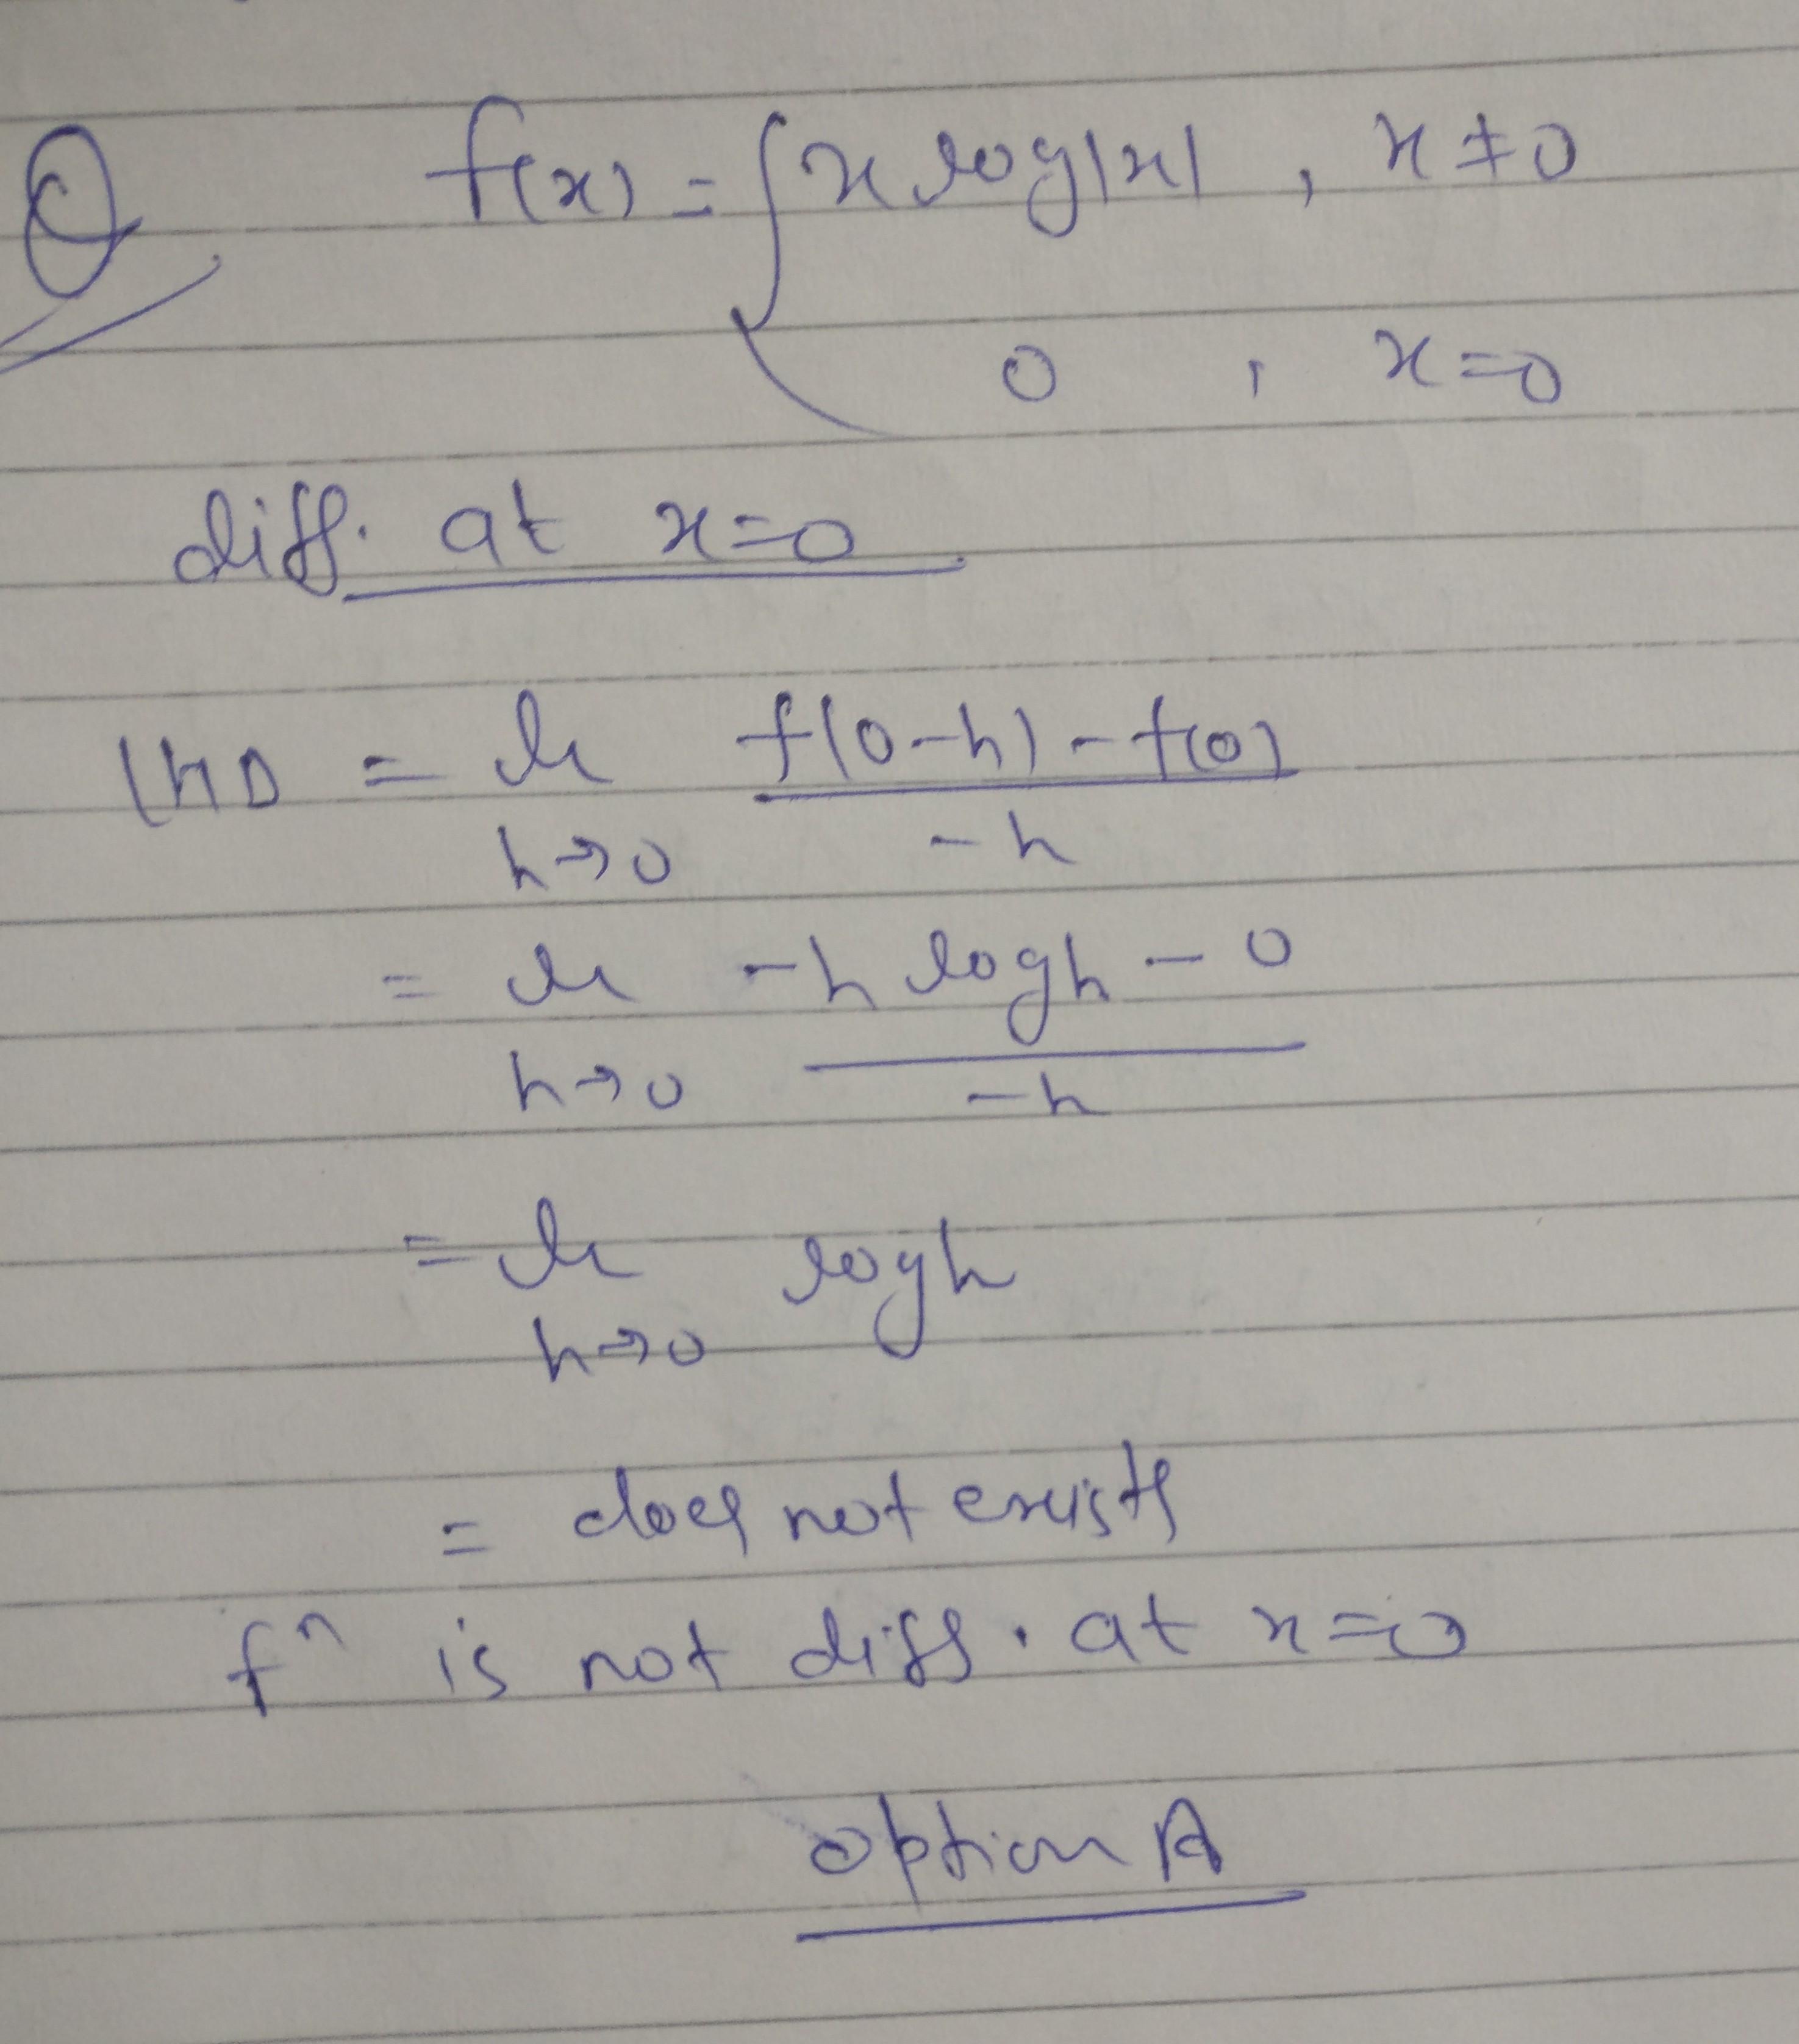 Q f(x) = { x log|x| , x ≠ 0
0 , x = 0
diff. at x=0
LHD = lt f(0-h) - f(0)
h→0 -h
= lt -h logh - 0
h→0 -h
= lt logh
h→0
= does not exists
fⁿ is not diff. at x=0
option A